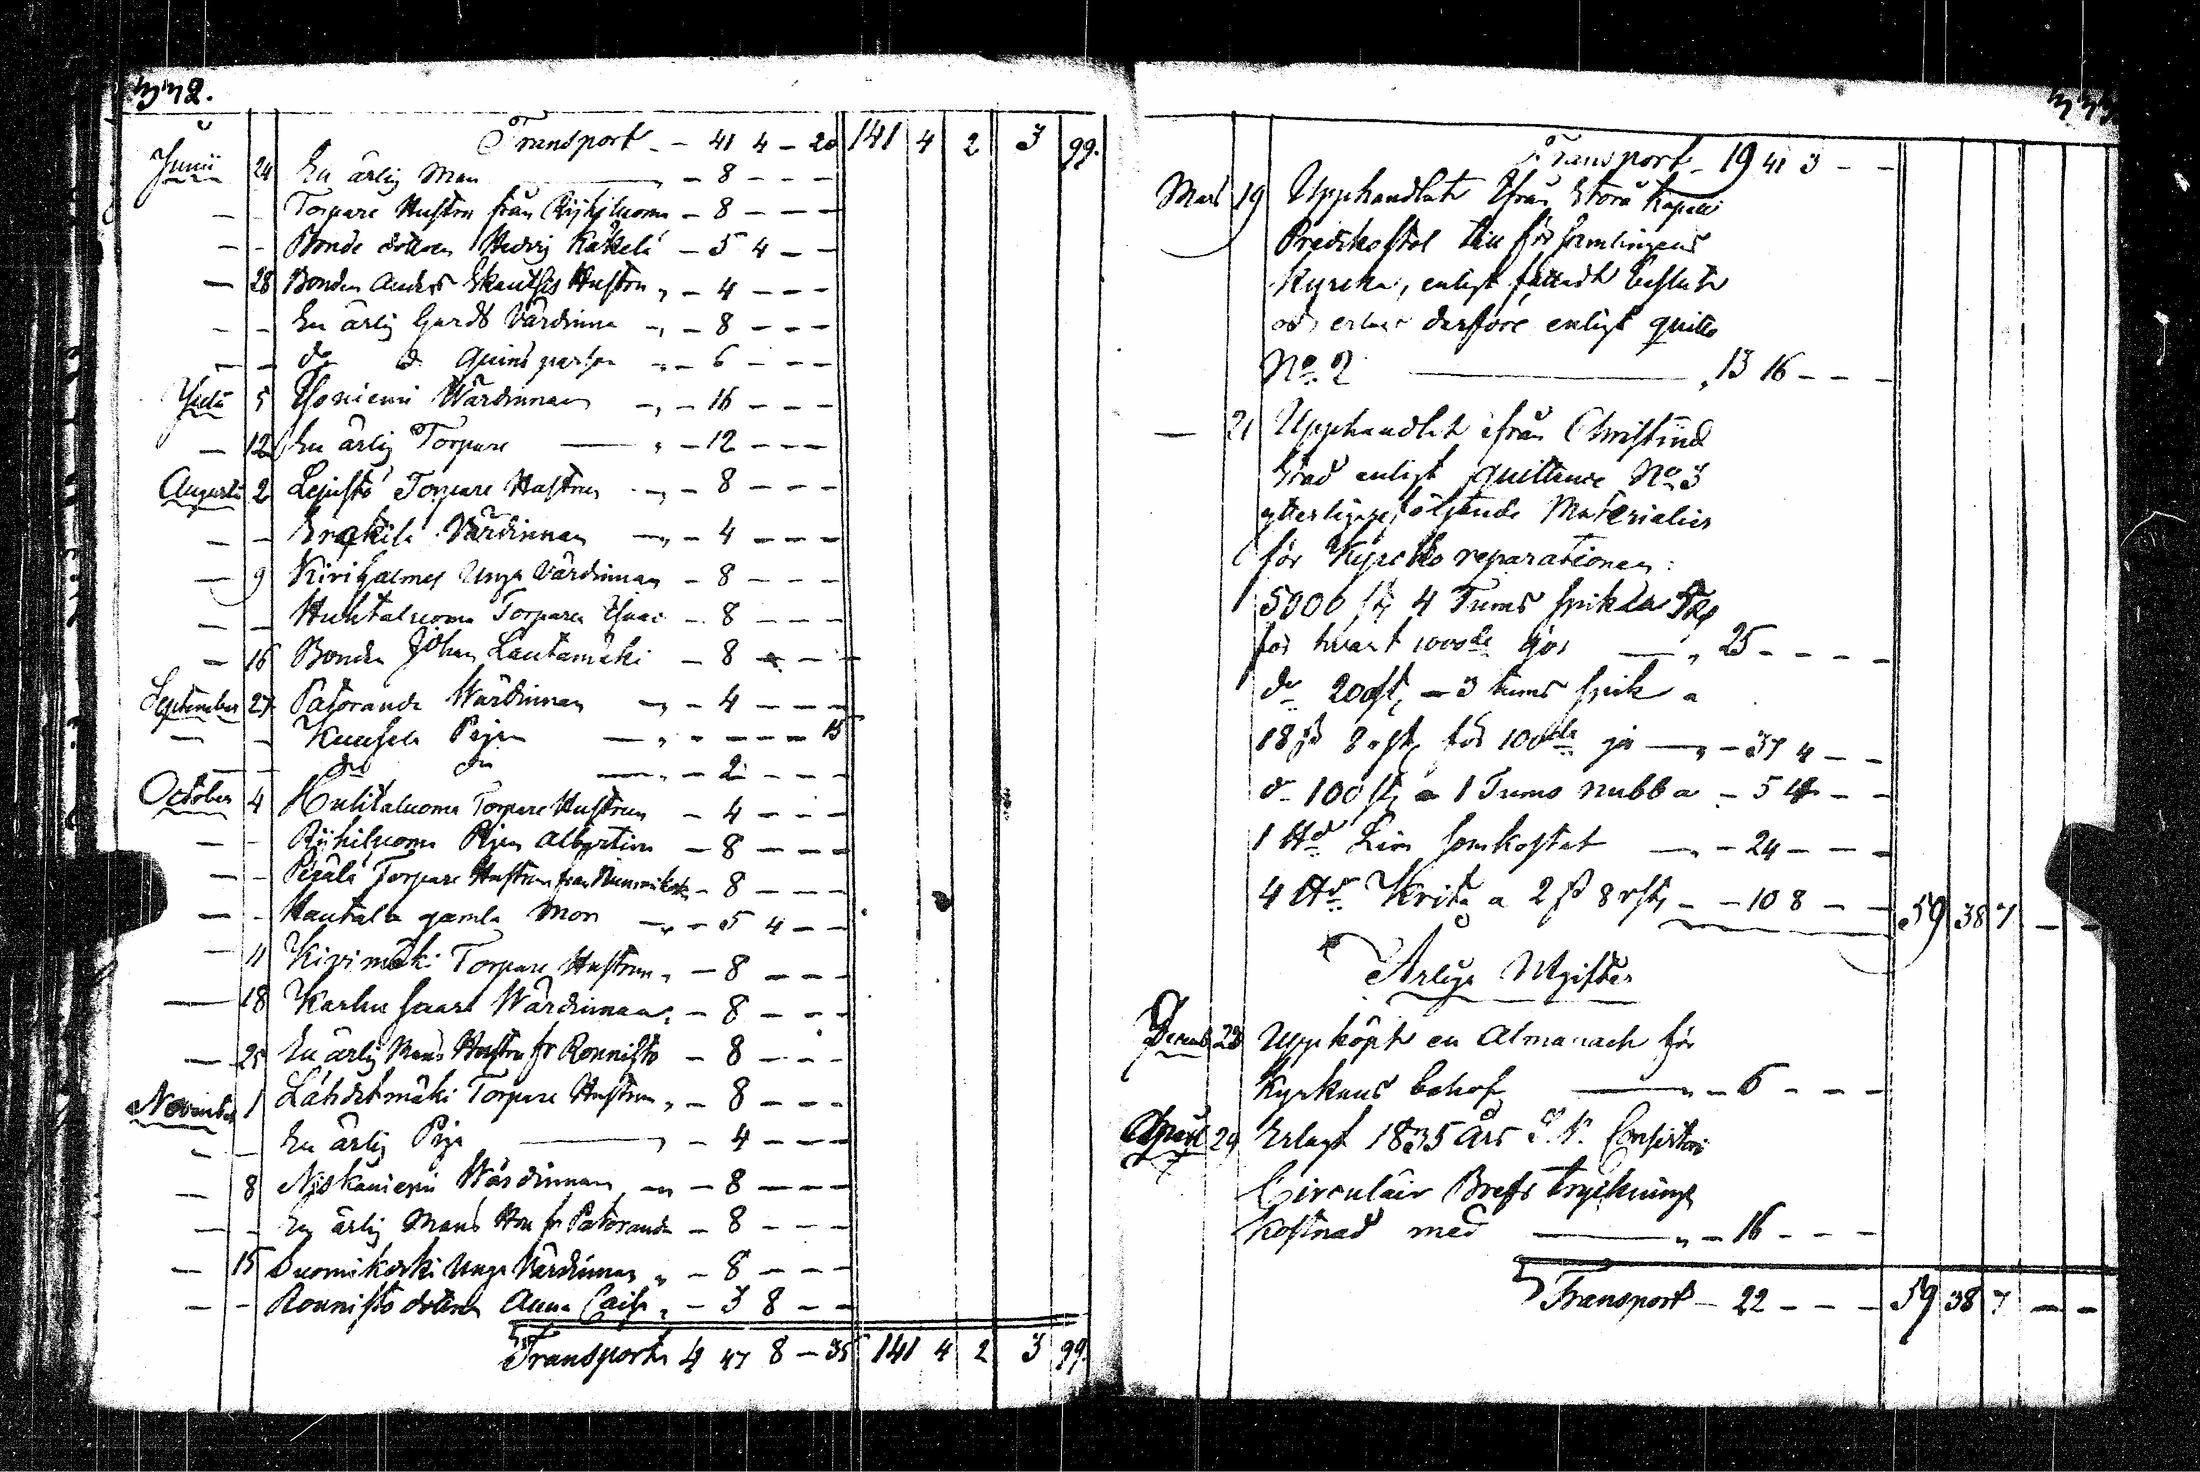 332.
Transport - 41 4 - 20 141 4 2 3 99.
Junii 24 En ärlig Man - 8 - - -
- - Torpare Hustru från Rijhiluoma - 8 - - -
- - Bonde dottren Hedvig Käkelä - 5 4 - -
- 28 Bonden Anders Hustru - 4 - - -
- - En ärlig Gårds Värdinna - 8 - - -
- - do d Quins person - 6 - - -
Julii 5 Wärdinnan - 16 - - -
- 12 En ärlig Torpare - 12 - - -
Augusti 2 Torpare Hustrun - 8 - - -
- - Wärdinnan - 4 - - -
- 9 Unga Värdinnan - 8 - - -
- - Huhtaluoma Torparen - 8 - - -
- 16 Bonden Johan Lautamäki - 8 - - -
September 27 Patoranda Wärdinnan - 4 - - -
- - Pigan - - - - 15
- - do do - 2 - - -
October 4 Huhtaluoma Torpare Hustrun - 4 - - -
- - Rijhiluoma Pigan Albertina - 8 - - -
- - Torpare Hustrun från - 8 - - -
- - Hautala gamla Mor - 5 4 - -
11 Kivimäki Torpare Hustrun - 8 - - -
- 18 Karhusaari Wärdinnan - 8 - - -
- 25 En ärlig Mans Hustru fr Ronnisto - 8 - - -
November 1 Lähdetmäki Torpare Hustrun - 8 - - -
- - En ärlig Piga - 4 - - -
- 8 Niskaniemi Wärdinnan - 8 - - -
- - En ärlig Mans Hon fr Patoranda - 8 - - -
- 15 Suomikoski Unga Värdinnan - 8 - - -
- - Ronnisto dottren Anna Caisa - 3 8 - -
Transport 4 47 8 - 35 141 4 2 3 99.
333.
Transport - 19 41 3 - -
Mars 19 Upphandlat ifrån Storå Kapell
Predikostol till församlingens
Kyrcka, enligt fattadt beslut
och erlagt derföre enligt quitto
No. 2 13 16 - - -
- 21 Upphandlat ifrån Christinæ
Stad enligt quittence No 3
ytterligare följande Materialier
för Kyrcko reparationen:
5000 st 4 Tums spik
för hvart 1000de gör 25 - - - -
do 200 st, - 3 tums spik a
18 8 för 100de gör - 37 4 - -
d- 100 st a 1 Tums nubb a - 5 4 - -
1 Lim som kostat - 24 - - -
4 Krita a 2 8 - - 10 8 - - 59 38 7 - -
Årliga Utgifter
28 Uppköpt en Almanach för
Kyrkans behof - 6 - - -
April 29 Erlagt 1835 Års Consistorii
Circulair Brefs trycknings
kostnad med - 16 - - -
Transport - 22 - - - 59 38 7 - -